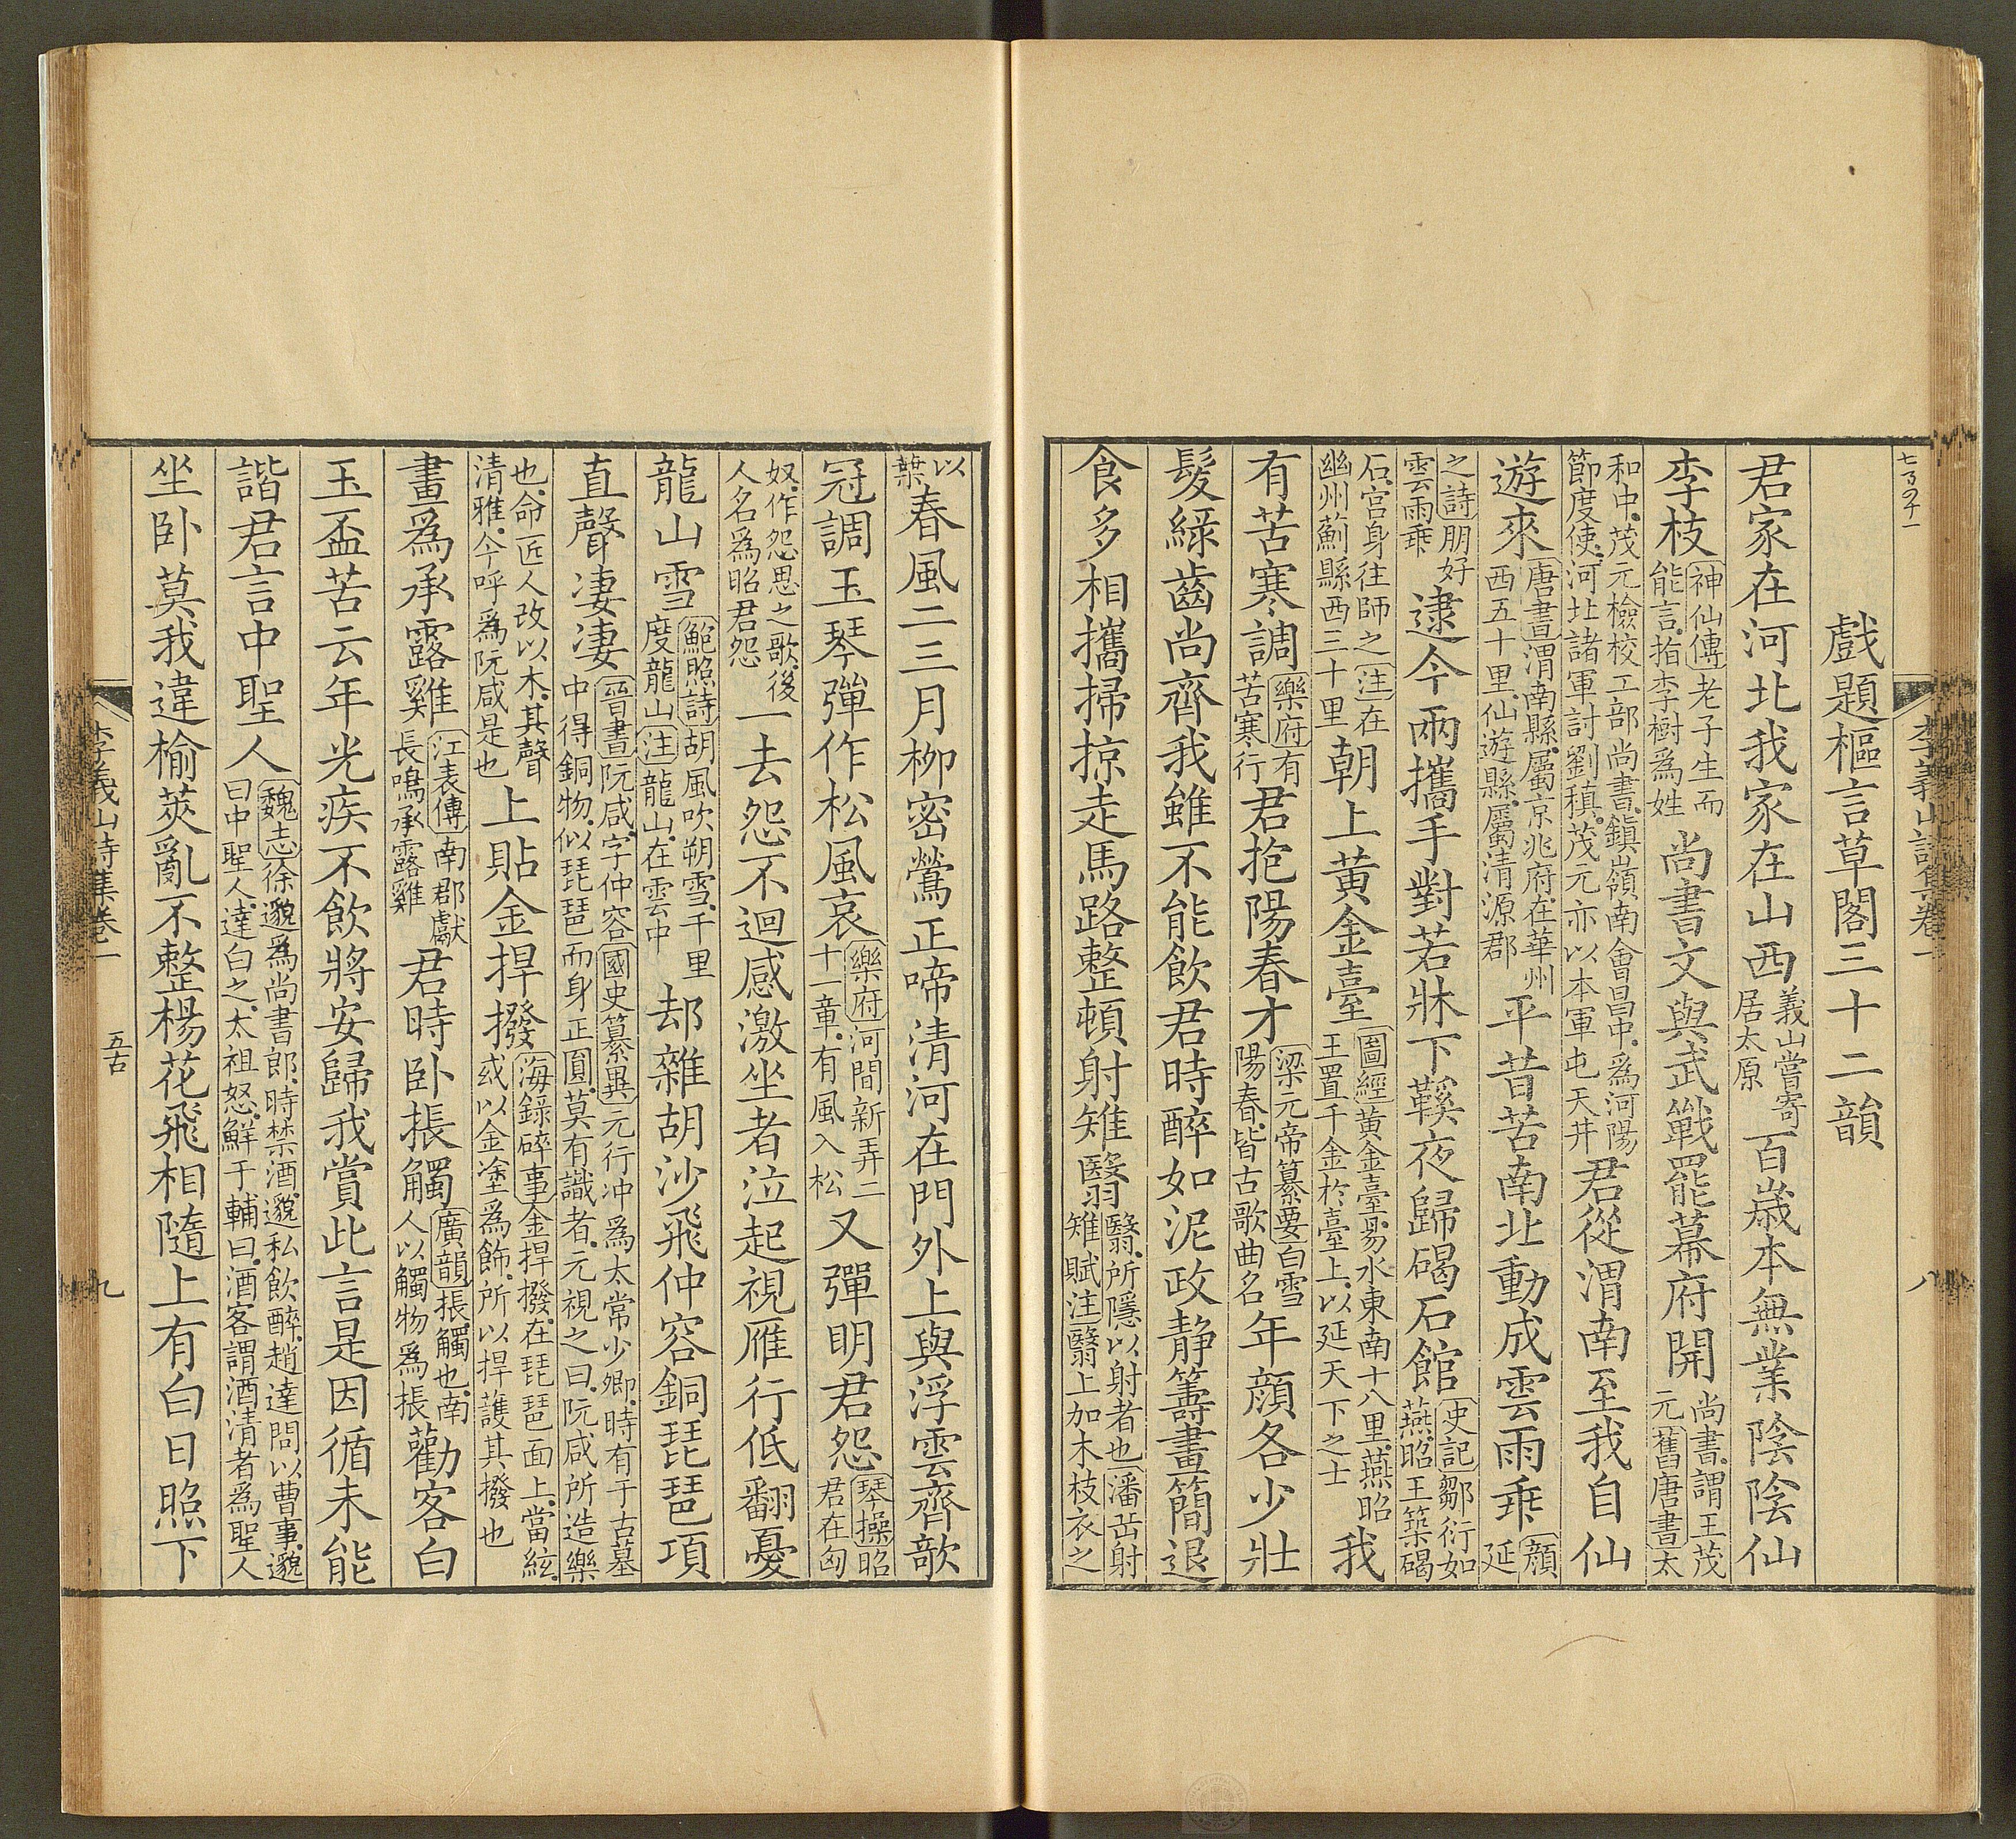 李義山詩集卷一
八
戲題樞言草閣三十二韻
君家在河北我家在山西義山嘗寄居太原百歲本無業陰陰仙
李枝神仙傳老子生而能言指李樹爲姓尚書文與武戰罷幕府開尚書謂王茂元舊唐書太
和中茂元檢校工部尚書鎮嶺南會昌中爲河陽節度使河北諸軍討劉稹茂元亦以本軍屯天井君從渭南至我自仙
遊來唐書渭南縣屬京兆府在華州西五十里仙遊縣屬清源郡平昔苦南北動成雲雨乖顔延
之詩朋好雲雨乖逮今兩攜手對若牀下鞵夜歸碣石館史記鄒衍如燕昭王築碣
石宮身往師之注在幽州薊縣西三十里朝上黃金臺圖經黃金臺易水東南十八里燕昭王置千金於臺上以延天下之士我
有苦寒調樂府有苦寒行君抱陽春才梁元帝纂要白雪陽春皆古歌曲名年顔各少壯
髮綠齒尚齊我雖不能飲君時醉如泥政静籌畫簡退
食多相攜掃掠走馬路整頓射雉翳翳所隱以射者也潘岳射雉賦注翳上加木枝衣之
以葉春風二三月柳密鶯正啼清河在門外上與浮雲齊欹
冠調玉琴彈作松風哀樂府河間新弄二十一章有風入松又彈明君怨琴操昭君在匈
奴作怨思之歌後人名爲昭君怨一去怨不迴感激坐者泣起視雁行低翻憂
龍山雪鮑照詩胡風吹朔雪千里度龍山注龍山在雲中却雜胡沙飛仲容銅琵琶項
直聲淒淒晉書阮咸字仲容國史纂異元行冲爲太常少卿時有于古墓中得銅物似琵琶而身正圓莫有識者元視之曰阮咸所造樂
也命匠人改以木其聲清雅今呼爲阮咸是也上貼金捍撥海錄碎事金捍撥在琵琶面上當絃或以金塗爲飾所以捍護其撥也
畫爲承露雞江表傳南郡獻長鳴承露雞君時卧掁觸廣韻掁觸也南人以觸物爲掁勸客白
玉盃苦云年光疾不飲將安歸我賞此言是因循未能
諧君言中聖人魏志徐邈爲尚書郎時禁酒邈私飲醉趙達問以曹事邈曰中聖人達白之太祖怒鮮于輔曰酒客謂酒清者爲聖人
坐卧莫我違榆莢亂不整楊花飛相隨上有白日照下
李義山詩集卷一
五古
九